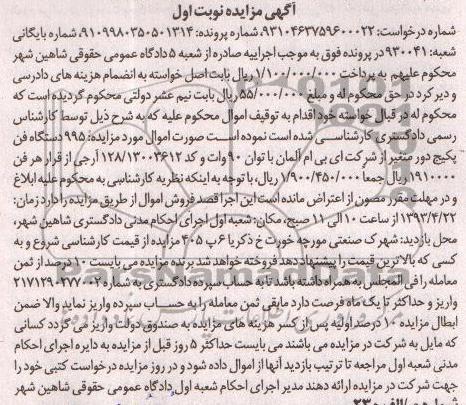 آگهی مزایده نوبت اول
شماره درخواست: ۹۳۱۰۴۶۳۷۵۹۶۰۰۰۲۲، شماره پرونده: ۹۱۰۹۹۸۰۳۵۰۵۰۱۳۱۴، شماره بایگانی
شعبه: ۹۳۰۰۴۱ در پرونده فوق به موجب اجراییه صادره از شعبه ۵ دادگاه عمومی حقوقی شاهین شهر
محکوم علیهم به پرداخت ۱/۱۰۰/۰۰۰/۰۰۰ ریال بابت اصل خواسته به انضمام هزینه های دادرسی
و دیر کرد در حق محکوم له و مبلغ ۵۵/۰۰۰/۰۰۰ ریال بابت نیم عشر دولتی محکوم گردیده است که
محکوم له در قبال خواسته خود اقدام به توقیف اموال محکوم علیه که به شرح ذیل توسط کارشناس
رسمی دادگستری کارشناسی شده است نموده است صورت اموال مورد مزایده: ۹۹۵ دستگاه فن
پکیج دور متغیر از شرکت ای بی ام آلمان با توان ۹۰ وات و کد ۱۲۸/۱۳۰۰۳۶۱۲ آرجی از قرار هر فن
۱۹۱۰۰۰۰ ریال جمعا ۱/۹۰۰/۴۵۰/۰۰۰ ریال، با توجه به اینکه نظریه کارشناسی به محکوم علیه ابلاغ
و در مهلت مقرر مصون از اعتراض مانده است این اجرا قصد فروش اموال از طریق مزایده را دارد زمان:
۱۳۹۳/۴/۲۲ از ساعت ۱۰ الی ۱۱ صبح، مکان: شعبه اول اجرای احکام مدنی دادگستری شاهین شهر،
محل بازدید: شهرک صنعتی مورچه خورت خ ذکریا ۶ پ ۴۰۵ مزایده از قیمت کارشناسی شروع و به
کسی که بالاترین قیمت را پیشنهاد دهد فروخته خواهد شد برنده مزایده می بایست ۱۰ درصد از ثمن
معامله را فی المجلس به همراه داشته باشد تا به حساب سپرده دادگستری به شماره ۲۱۷۱۲۹۰۲۷۷۰۰۲
واریز و حداکثر تا یک ماه فرصت دارد مابقی ثمن معامله را به حساب سپرده واریز نماید والا ضمن
ابطال مزایده ۱۰ درصد اولیه پس از کسر هزینه های مزایده به صندوق دولت واریز می گردد کسانی
که مایل به شرکت در مزایده می باشند می بایست حداکثر ۵ روز قبل از مزایده به دایره اجرای احکام
مدنی شعبه اول مراجعه تا ترتیب بازدید آنها از اموال داده شود و در روز مزایده درخواست کتبی خود را
جهت شرکت در مزایده ارائه دهند مدیر اجرای احکام شعبه اول دادگاه عمومی حقوقی شاهین شهر
ParsNamadData